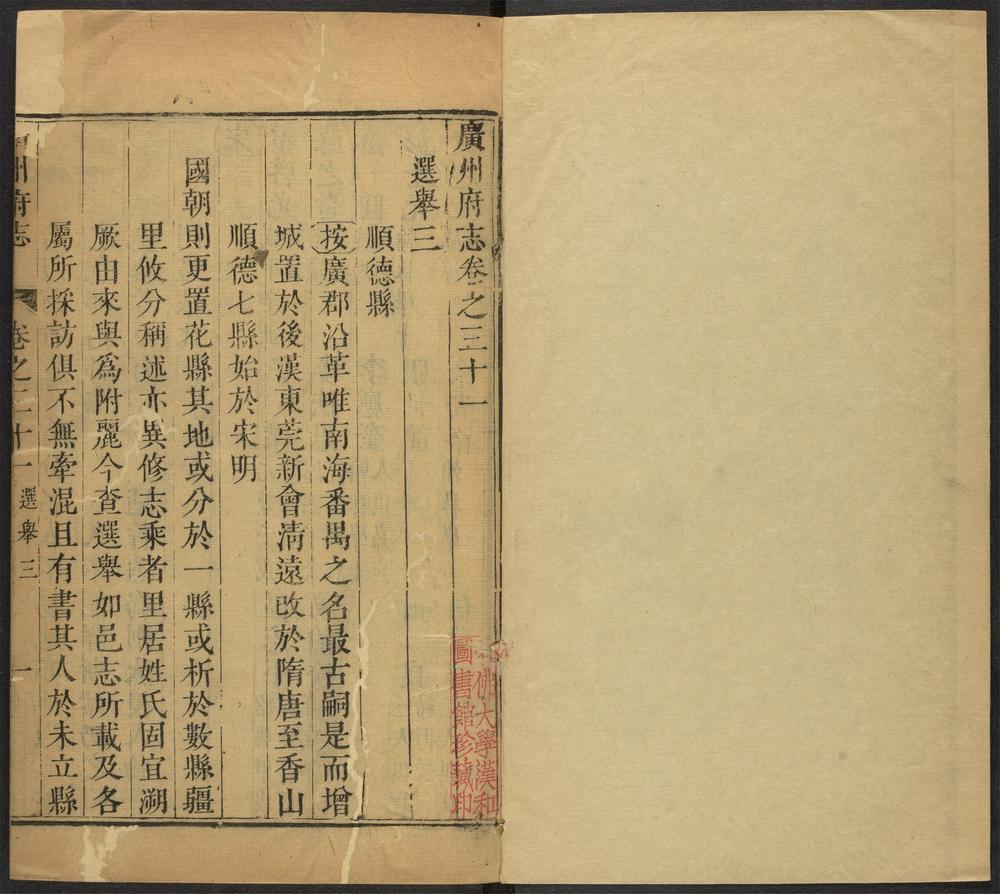 廣州府志卷之三十一
選舉三
順德縣
按廣郡沿革唯南海番禺之名最古嗣是而增
城置於後漢東莞新會清遠改於隋唐至香山
順德七縣始於宋明
國朝則更置花縣其地或分於一縣或析於數縣疆
里攸分稱述亦異修志乘者里居姓氏固宜溯
厥由來與爲附麗今查選舉如邑志所載及各
屬所採訪俱不無牽混且有書其人於未立縣
州府志 卷之三十一 選舉三 一
佛大學漢和
圖書館珍藏印